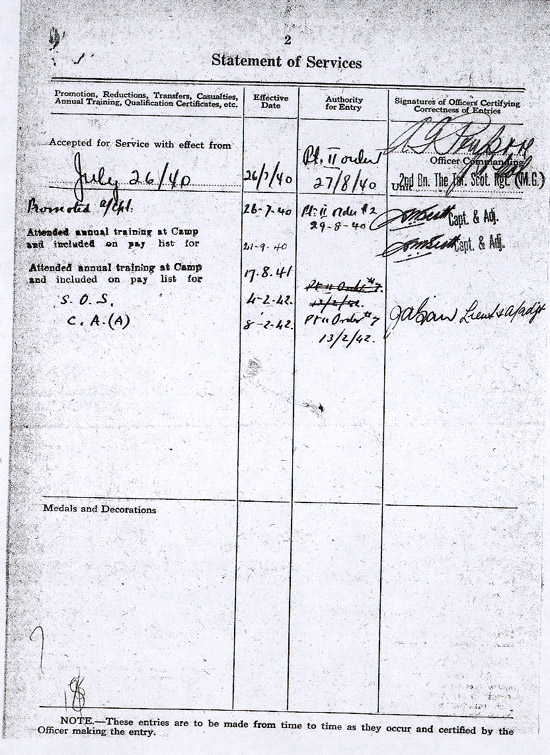 2
Statement of Services
Promotion, Reductions, Transfers, Casualties,
Annual Training, Qualification Certificates, etc.
Effective
Date
Authority
for Entry
Signatures of Officers Certifying
Correctness of Entries
Accepted for Service with effect from
July 26/40
26/7/40
Pt. II order
27/8/40
Officer Commanding
Unit 2nd Bn. The Tor. Scot. Rgt. (M.G.)
Promoted
26-7-40
Pt. II order #2
29-8-40
Capt. & Adj.
Attended annual training at Camp
and included on pay list for
21-9-40
Capt. & Adj.
Attended annual training at Camp
and included on pay list for
17.8.41
Pt II Order #7.
13/2/42.
S.O.S.
4-2-42.
C.A.(A)
8-2-42.
Pt II Order #7
13/2/42.
Lieut & a/adjt
Medals and Decorations
NOTE.—These entries are to be made from time to time as they occur and certified by the
Officer making the entry.